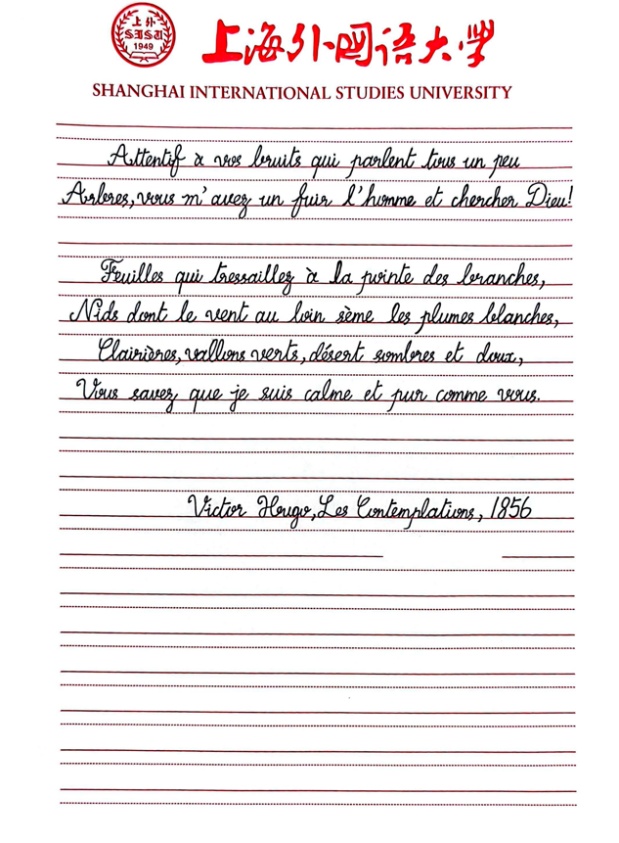 上外
SISU
1949
上海外国语大学
SHANGHAI INTERNATIONAL STUDIES UNIVERSITY
Attentif à vos bruits qui parlent tous un peu
Arbres, vous m'avez un fuir l'homme et chercher Dieu!
Feuilles qui tressaillez à la pointe des branches,
Nids dont le vent au loin sème les plumes blanches,
Clairières, vallons verts, désert sombres et doux,
Vous savez que je suis calme et pur comme vous.
Victor Hougo, Les Contemplations, 1856